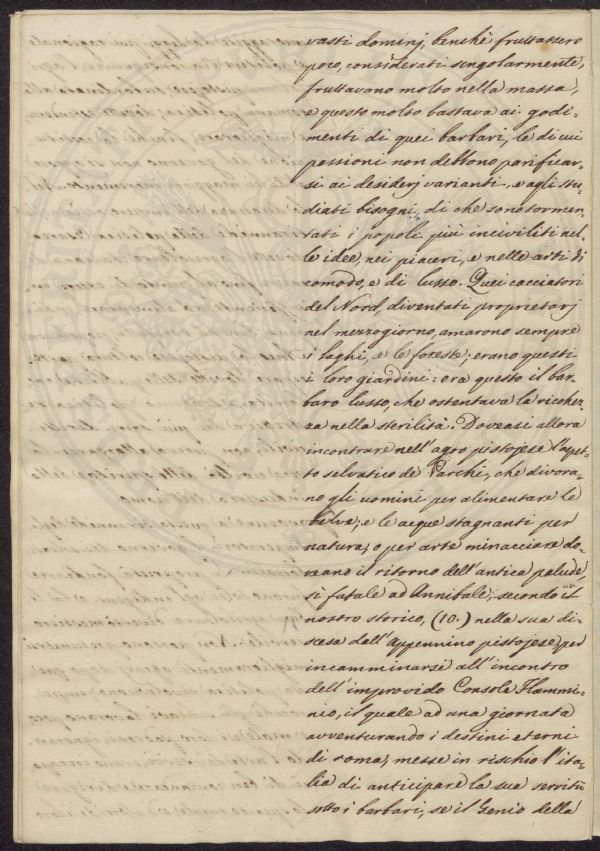 vasti dominj, benchè fruttassero
poco, considerati singolarmente,
fruttavano molto nella massa,
e questo molto bastava ai godi-
menti di quei barbari, le di cui
passioni non debbono parificar-
si ai desiderj varianti, e agli stu-
diati bisogni, di che sono tormen-
tati i popoli più inciviliti nel-
le idee, nei piaceri, e nelle arti di
comodo, e di lusso. Quei cacciatori
del Nord, diventati proprietarj
nel mezzogiorno, amarono sempre
i laghi, e le foreste; erano questi
i loro giardini: era questo il bar-
baro lusso, che ostentava la ricchez-
za nella sterilità. Doveasi allora
incontrare nell'agro pistojese l'aspet-
to selvatico de' Parchi, che divora-
no gli uomini per alimentare le
belve; e le acque stagnanti per
natura, o per arte minacciare do-
veano il ritorno dell'antica palude,
sì fatale ad Annibale, secondo il
nostro storico, (10.) nella sua di-
scesa dall'Appennino pistojese, per
incamminarsi all'incontro
dell'improvido Console Flammi-
nio, il quale ad una giornata
avventurando i destini eterni
di roma, messe in rischio l'ita-
lia di anticipare la sua servitù
sotto i barbari, se il Genio della